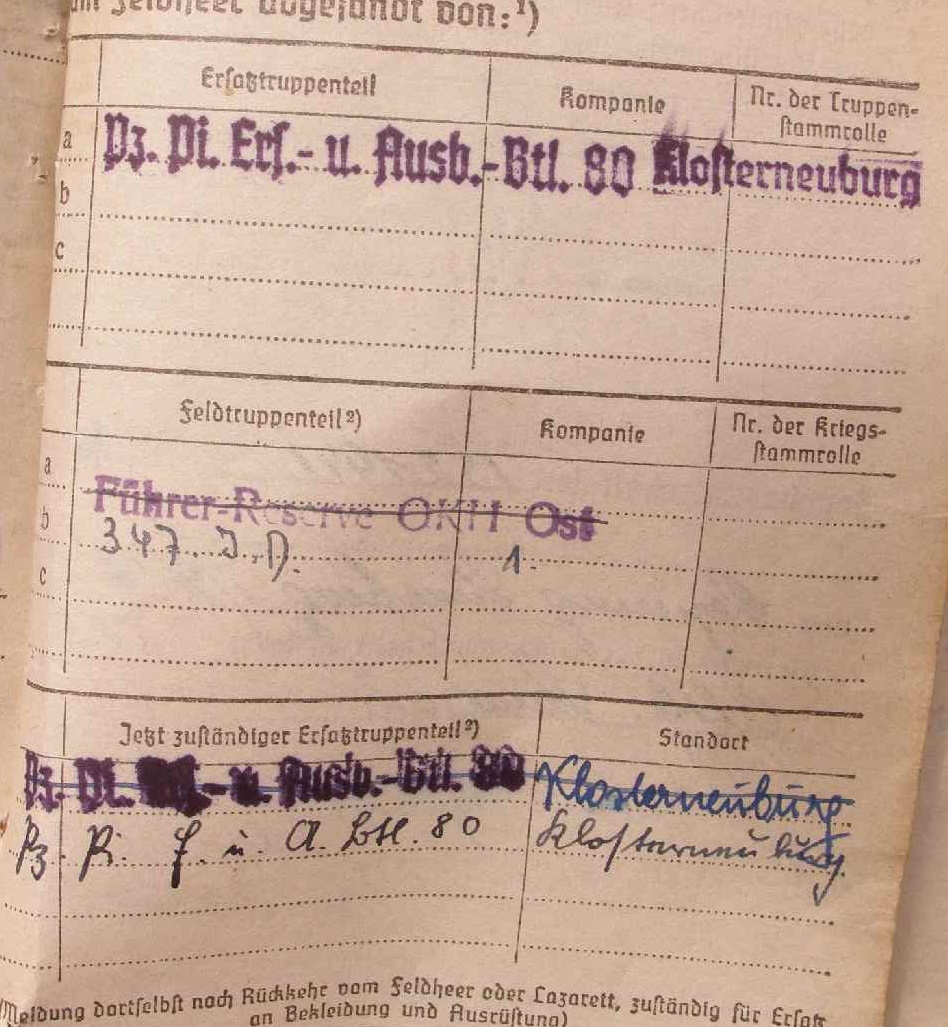 zum Feldheer abgesandt von:¹)
Ersatztruppenteil Kompanie Nr. der Truppen-
stammrolle
a Pz. Pi. Ers.- u. Ausb.-Btl. 80 Klosterneuburg
b
c
Feldtruppenteil²) Kompanie Nr. der Kriegs-
stammrolle
a Führer-Reserve OKH Ost
b 347. I.D. 1.
c
Jetzt zuständiger Ersatztruppenteil²) Standort
Pz. Pi. u. Ausb.-Btl. 80 Klosterneuburg
Pz. Pi. E. u. A. Btl. 80 Klosterneuburg
(Meldung dortselbst nach Rückkehr vom Feldheer oder Lazarett, zuständig für Ersatz
an Bekleidung und Ausrüstung)